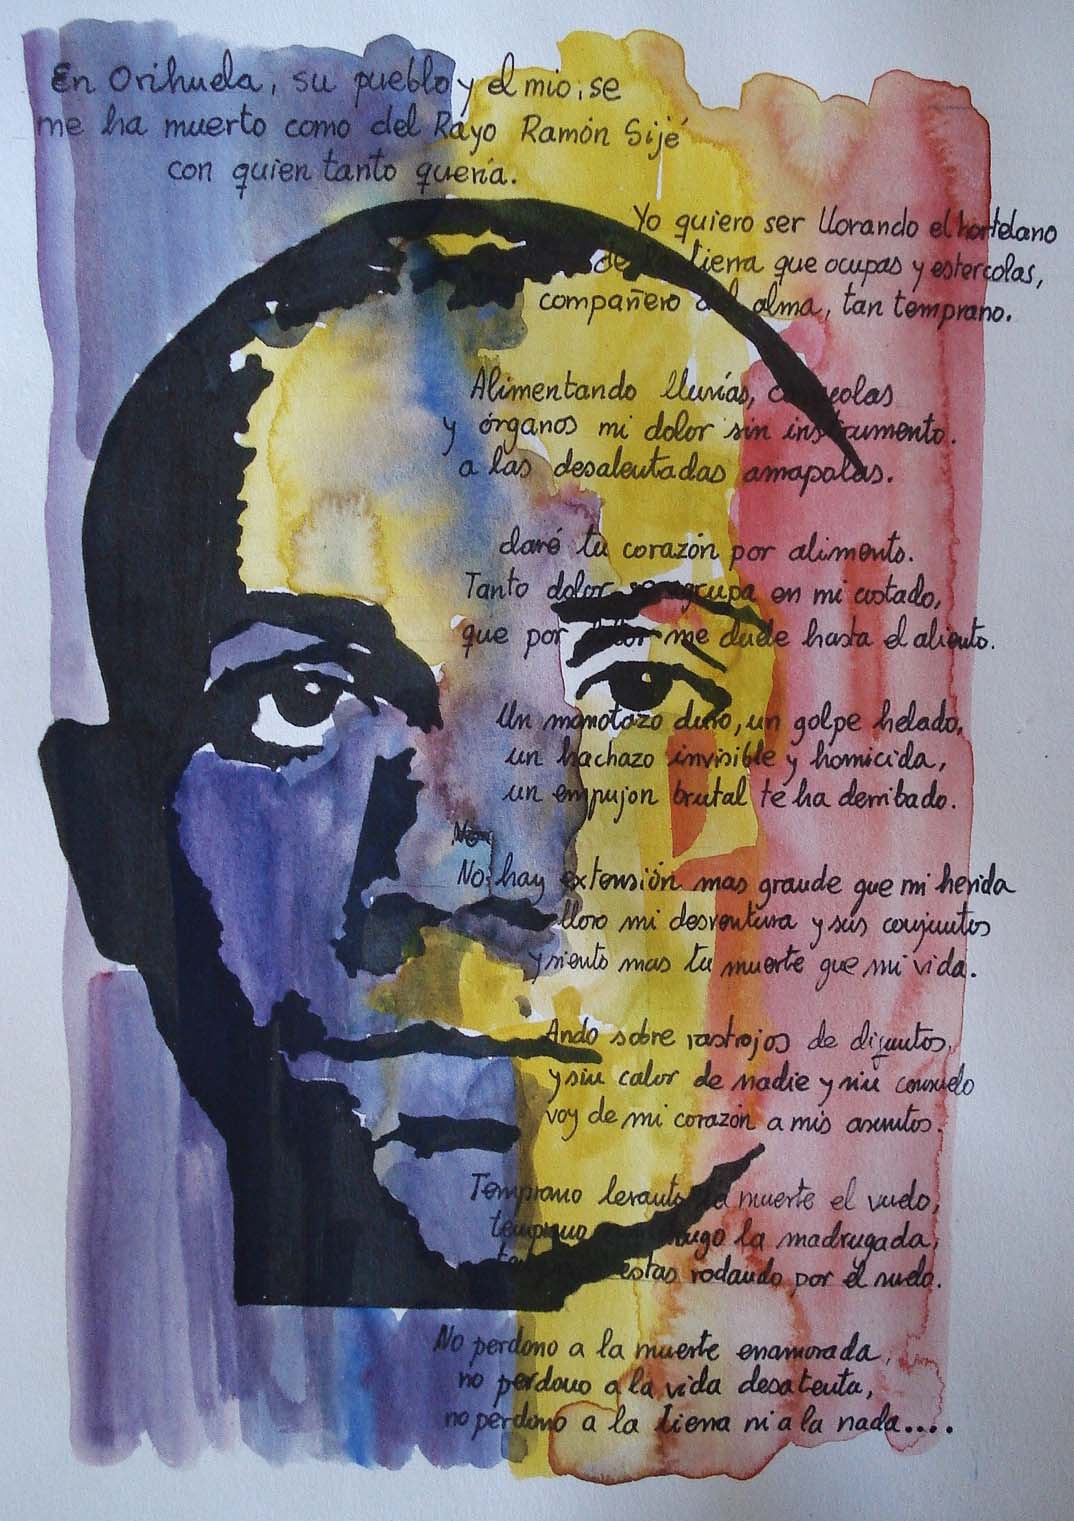 En Orihuela, su pueblo y el mio, se
me ha muerto como del Rayo Ramón Sijé
con quien tanto quería.
Yo quiero ser llorando el hortelano
de la tierra que ocupas y estercolas,
compañero del alma, tan temprano.
Alimentando lluvias, caracolas
y órganos mi dolor sin instrumento.
a las desalentadas amapolas.
daré tu corazón por alimento.
Tanto dolor se agrupa en mi costado,
que por dolor me duele hasta el aliento.
Un manotazo duro, un golpe helado,
un hachazo invisible y homicida,
un empujon brutal te ha derribado.
No hay extensión mas grande que mi herida
lloro mi desventura y sus conjuntos
y siento mas tu muerte que mi vida.
Ando sobre rastrojos de difuntos,
y sin calor de nadie y sin consuelo
voy de mi corazón a mis asuntos.
Temprano levanto la muerte el vuelo,
temprano la madrugada,
estas rodando por el suelo.
No perdono a la muerte enamorada,
no perdono a la vida desatenta,
no perdono a la tierra ni a la nada....